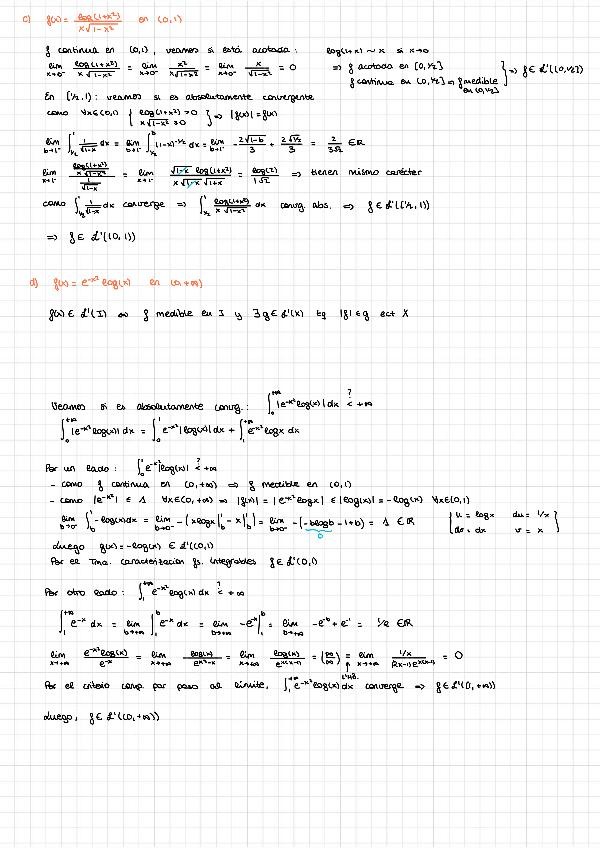 c) f(x) = log(1+x²) / (x√(1-x²)) en (0,1)
f continua en (0,1), veamos si está acotada: log(1+x) ~ x si x→0
lim_{x→0⁺} log(1+x²)/(x√(1-x²)) = lim_{x→0⁺} x²/(x√(1-x²)) = lim_{x→0⁺} x/√(1-x²) = 0 ⇒ f acotada en [0,1/2]
f continua en (0,1/2] ⇒ f medible en (0,1/2) } ⇒ f ∈ L¹((0,1/2])
En [1/2,1): veamos si es absolutamente convergente
como ∀x∈(0,1) { log(1+x²) > 0
x√(1-x²) > 0 } ⇒ |f(x)| = f(x)
lim_{b→1⁻} ∫_{1/2}^{b} 1/√(1-x) dx = lim_{b→1⁻} ∫_{1/2}^{b} (1-x)^{-1/2} dx = lim_{b→1⁻} - 2√(1-b)/3 + 2√(1/2)/3 = 2/(3√2) ∈ ℝ
lim_{x→1⁻} (log(1+x²)/(x√(1-x²))) / (1/√(1-x)) = lim_{x→1⁻} √(1-x) log(1+x²) / (x√(1-x)√(1+x)) = log(2)/(1√2) ⇒ tienen mismo carácter
como ∫_{1/2}^{1} 1/√(1-x) dx converge ⇒ ∫_{1/2}^{1} log(1+x²)/(x√(1-x²)) dx convg. abs. ⇒ f ∈ L¹([1/2,1))
⇒ f ∈ L¹((0,1))
d) f(x) = e^{-x²} log(x) en (0,+∞)
f(x) ∈ L¹(I) ⇔ f medible en I y ∃g ∈ L¹(X) tq |f| ≤ g ect X
Veamos si es absolutamente convg.: ∫_0^{+∞} |e^{-x²} log(x)| dx <? +∞
∫_0^{+∞} |e^{-x²} log(x)| dx = ∫_0^1 e^{-x²} |log(x)| dx + ∫_1^{+∞} e^{-x²} log x dx
Por un lado: ∫_0^1 e^{-x²} |log(x)| <? +∞
- como f continua en (0,+∞) ⇒ f medible en (0,1)
- como |e^{-x²}| ≤ 1 ∀x∈(0,+∞) ⇒ |f(x)| = |e^{-x²} log x| ≤ |log(x)| = -log(x) ∀x∈(0,1)
lim_{b→0⁺} ∫_b^1 -log(x)dx = lim_{b→0⁺} -(x log x|_b^1 - x|_b^1) = lim_{b→0⁺} -(-b log b - 1 + b) = 1 ∈ ℝ { u = log x du = 1/x
0 dv = dx v = x }
Luego g(x) = -log(x) ∈ L¹((0,1)
Por el Tma. caracterización fs. integrables f ∈ L¹(0,1)
Por otro lado: ∫_1^{+∞} e^{-x²} log(x) dx <? +∞
∫_1^{+∞} e^{-x} dx = lim_{b→+∞} ∫_1^b e^{-x} dx = lim_{b→+∞} -e^{-x}|_1^b = lim_{b→+∞} -e^{-b} + e^{-1} = 1/e ∈ ℝ
lim_{x→+∞} e^{-x²} log(x)/e^{-x} = lim_{x→+∞} log(x)/e^{x²-x} = lim_{x→+∞} log(x)/e^{x(x-1)} = (∞/∞) = lim_{x→+∞} (1/x)/((2x-1)e^{x(x-1)}) = 0
L'Hôp.
Por el criterio comp. por paso al límite, ∫_1^{+∞} e^{-x²} log(x) dx converge ⇒ f ∈ L¹((1,+∞))
Luego, f ∈ L¹((0,+∞))